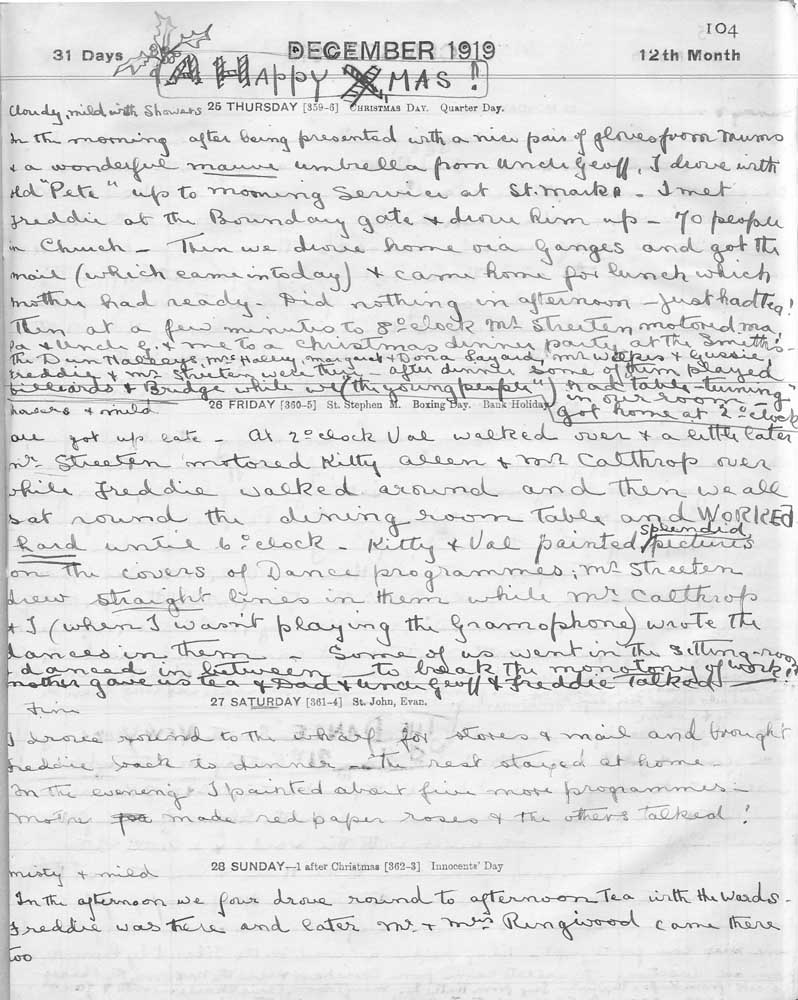 104
31 Days DECEMBER 1919 12th Month
A Happy Xmas!
Cloudy, mild with Showers 25 THURSDAY [359-6] Christmas Day. Quarter Day.
In the morning after being presented with a nice pair of gloves from Mums
& a wonderful mauve umbrella from Uncle Geoff, I drove with
old "Pete" up to morning Service at St. Marks. I met
Freddie at the Boundary gate & drove him up - 70 people
in Church - Then we drove home via Ganges and got the
mail (which came in today) & came home for lunch which
mother had ready. Did nothing in afternoon - just had tea!
Then at a few minutes to 8 o'clock Mr Streeten motored ma,
Pa & Uncle G. & me to a Christmas dinner party at the Smith's -
the Dun Halseys, Mrs Halley, Margaret & Dora Layard, Mr & Gussie,
Freddie & Mr Streeten were there. after dinner some of them played
billiards & Bridge while we ("the young people") had table-turning
in our room
got home at 2 o'clock
Showers & mild 26 FRIDAY [360-5] St. Stephen M. Boxing Day. Bank Holiday
all got up late - At 2 o'clock Val walked over & a little later
Mr Streeten motored Kitty Allen & Mr Calthrop over
while Freddie walked around and then we all
sat round the dining room table and WORKED
hard until 6 o'clock - Kitty & Val painted splendid pictures
on the covers of Dance programmes; Mr Streeten
drew straight lines in them while Mr Calthrop
& I (when I wasn't playing the Gramophone) wrote the
dances in them - Some of us went in the sitting-room
& danced in between - to break the monotony of work!?
mother gave us tea & Dad & Uncle Geoff & Freddie Talked
27 SATURDAY [361-4] St. John, Evan.
Fine
I drove round to the wharf for stores & mail and brought
Freddie back to dinner - the rest stayed at home -
In the evening I painted about five more programmes -
made red paper roses & the others talked!
misty & mild 28 SUNDAY—1 after Christmas [362-3] Innocents' Day
In the afternoon we four drove round to afternoon Tea with the Wards -
Freddie was there and later Mr & Mrs Ringwood came there
too